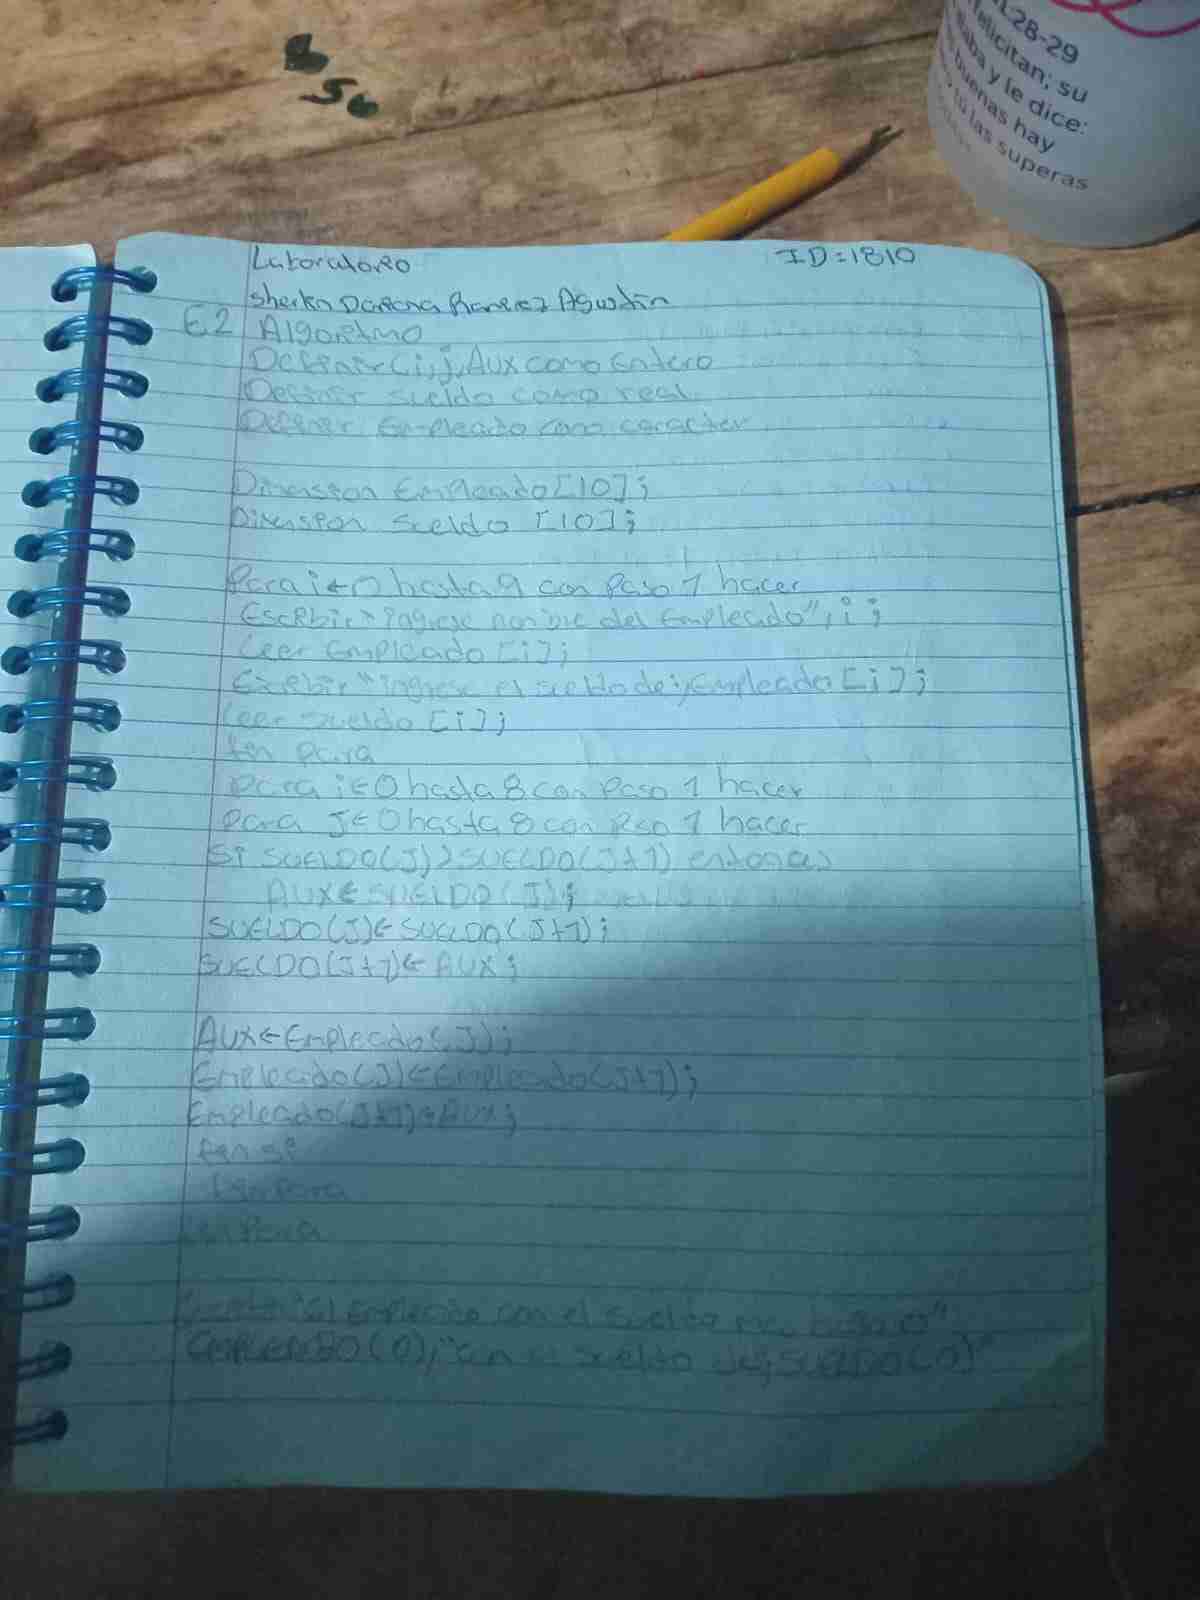 L28-29
felicitan; su
alaba y le dice:
buenas hay
tú las superas
Laboratorio
ID=1810
Agustin
E2 Algoritmo
Definir i, j, Aux como Entero
Definir sueldo como real
Definir Empleado como caracter
Dimension Empleado [10];
Dimension sueldo [10];
Para i ← 0 hasta 9 con Paso 1 hacer
Escribir "ingrese nombre del Empleado", i;
Leer Empleado [i];
Escribir "ingrese el sueldo de", Empleado [i];
Leer sueldo [i];
fin para
para i ← 0 hasta 8 con Paso 1 hacer
para J ← 0 hasta 8 con Pso 1 hacer
Si SUELDO(J) > SUELDO(J+1) entonces
AUX ← SUELDO(J);
SUELDO(J) ← SUELDO(J+1);
SUELDO(J+1) ← AUX;
AUX ← Empleado(J);
Empleado(J) ← Empleado(J+1);
Empleado(J+1) ← AUX;
fin si
fin Para
fin Para
"El Empleado con el sueldo mas bajo"
EMPLEADO(0), "con el sueldo de", SUELDO(0)